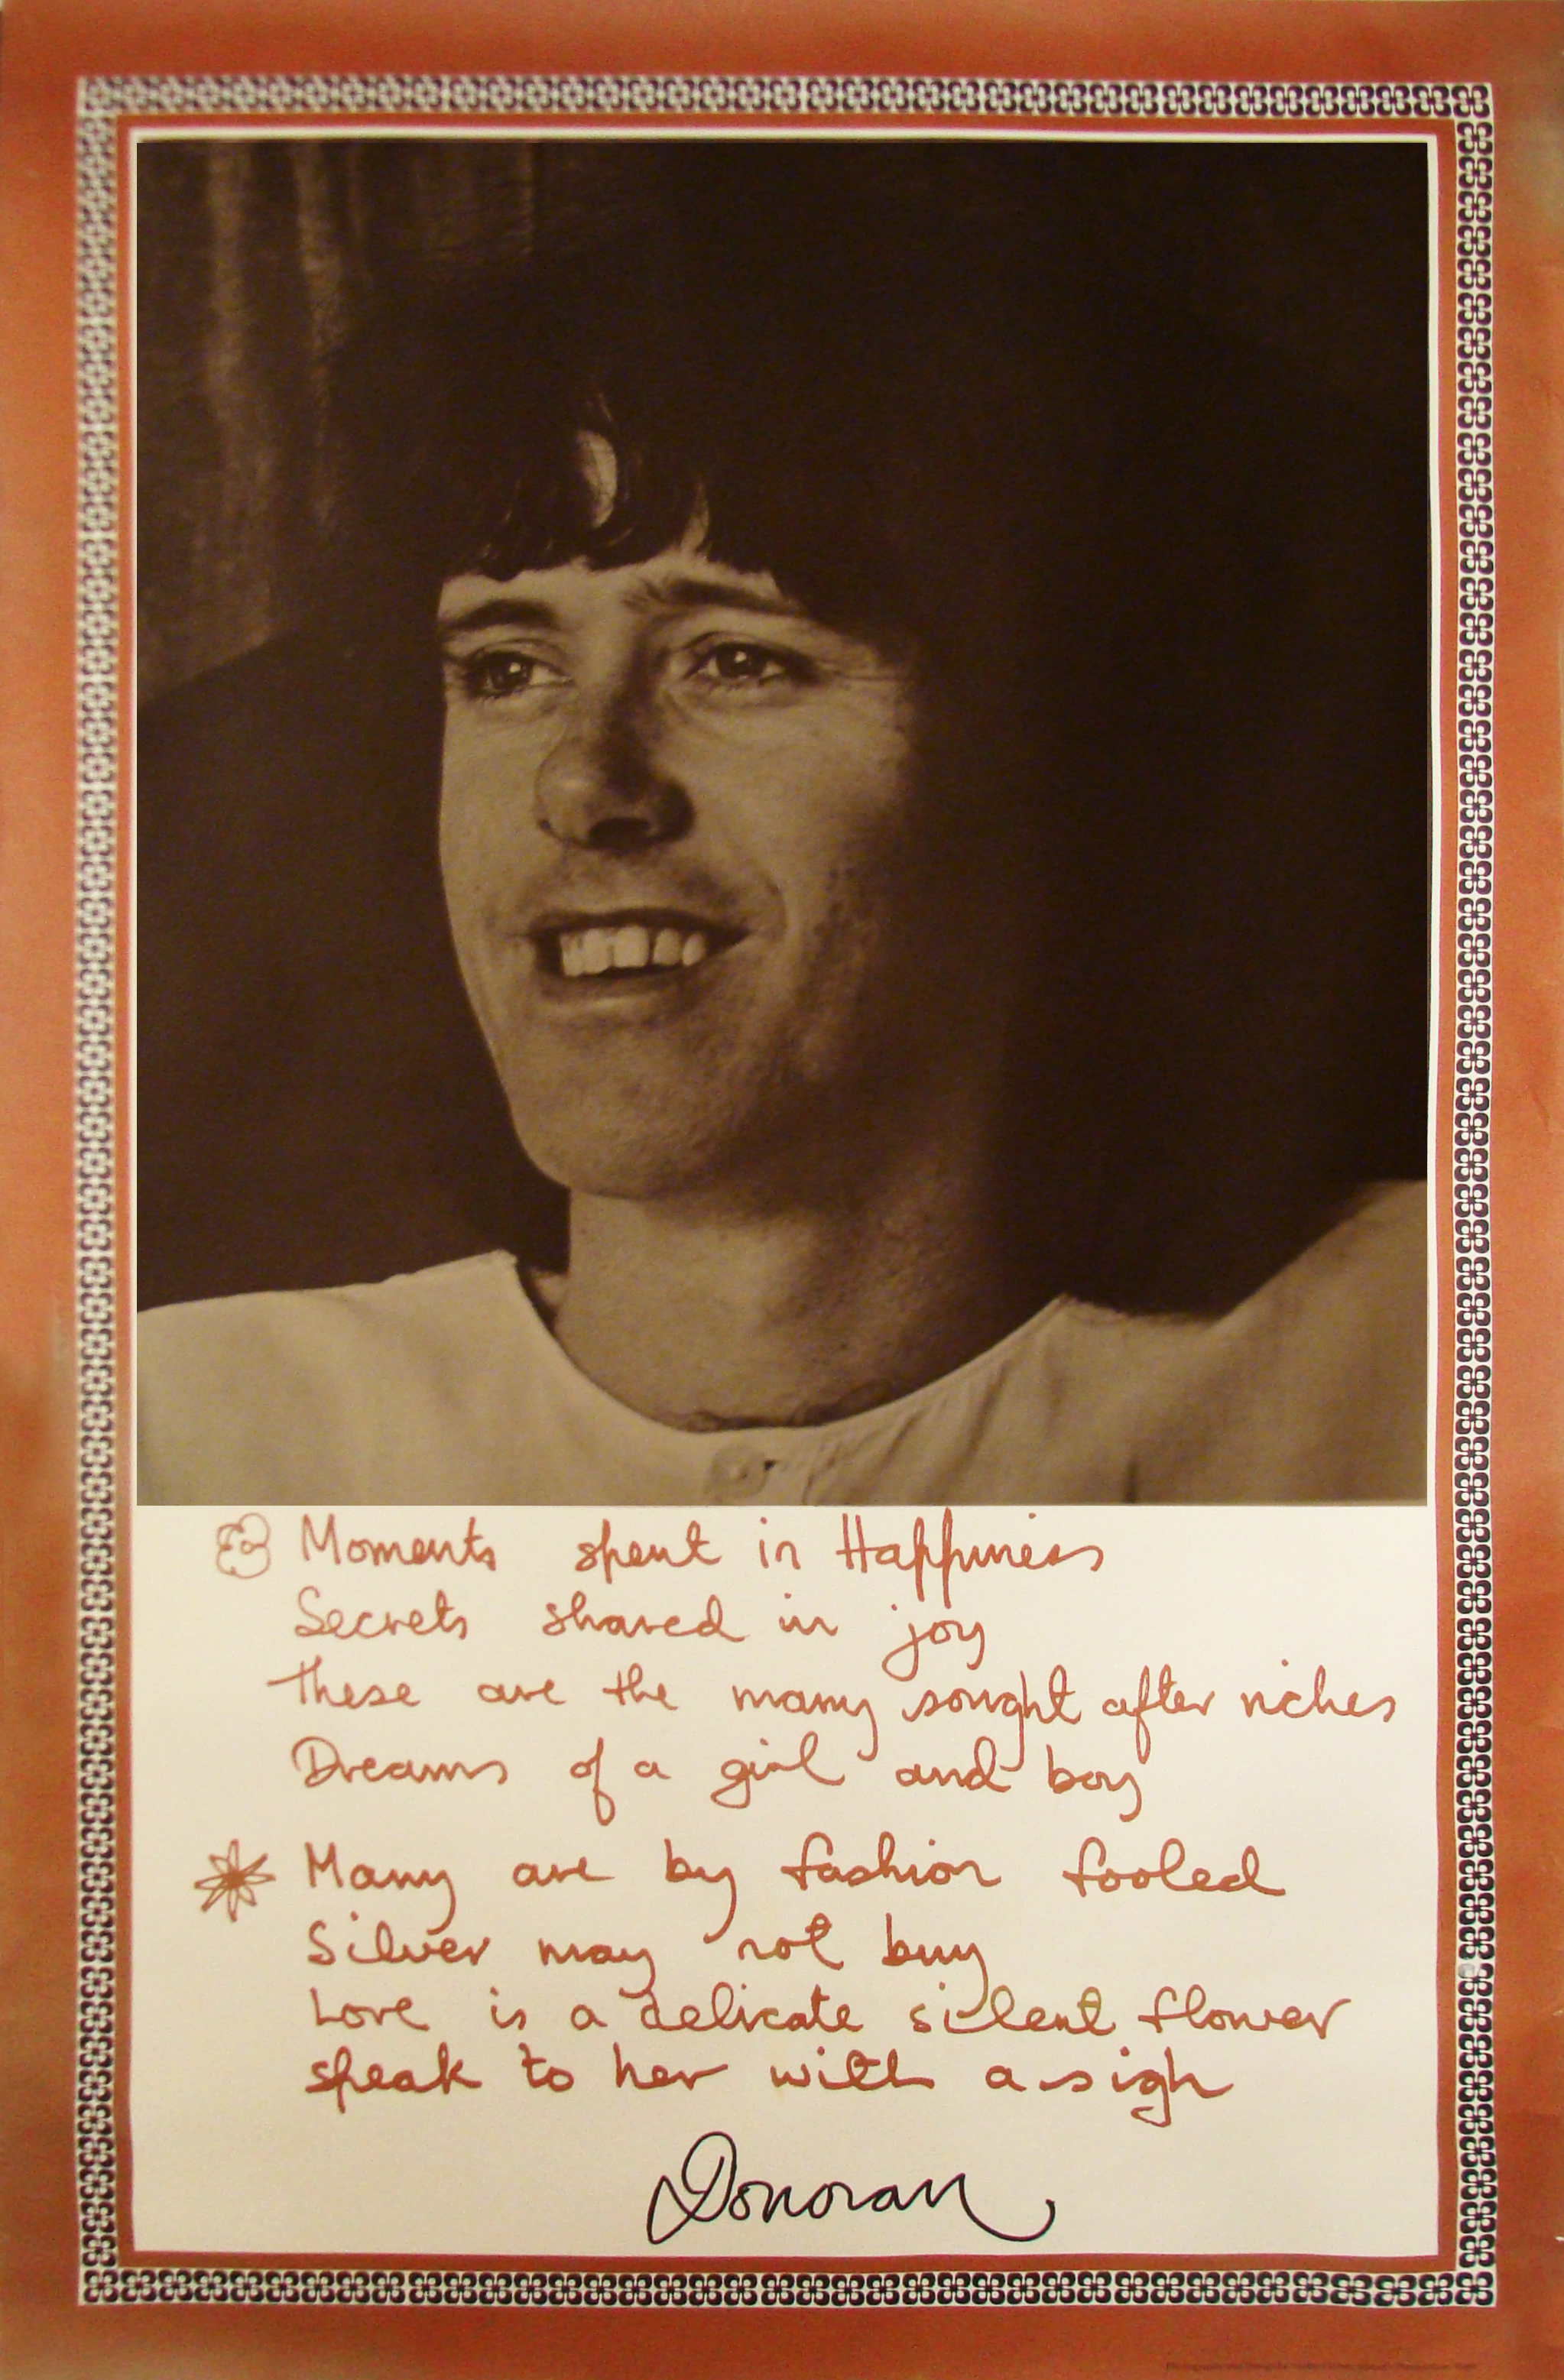 Moments spent in Happiness
Secrets shared in joy
These are the many sought after riches
Dreams of a girl and boy
Many are by fashion fooled
Silver may not buy
Love is a delicate silent flower
speak to her with a sigh
Donovan